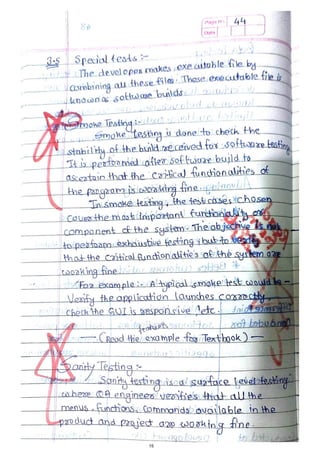 Page No. 44
Date
3.5 Special tests :-
The developer makes executable file by
combining all these files. These executable file is
known as software builds
Smoke Testing:-
Smoke testing is done to check the
stability of the build received for software testing
It is performed after software build to
ascertain that the critical functionalities of
the program is working fine.
In smoke testing, the test cases chosen
cover the most important functionality or
component of the system. The objective is not
to perform exhaustive testing, but to verify
that the critical functionalities of the system are
working fine
For example:- A typical smoke test would be -
Verify the application launches correctly,
check the GUI is responsive, etc.
features
— (Read the example for Textbook) —
Sanity Testing :-
Sanity testing is a surface level testing
where QA engineer verifies that all the
menus, functions, commands available in the
product and project are working fine.
16